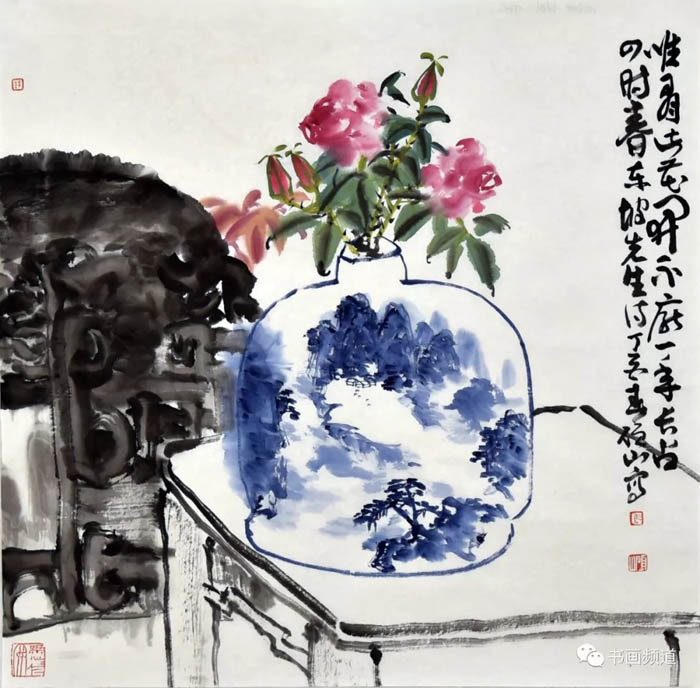 唯有此花開不厌一年长占
四时春东坡先生诗丁亥春山写
书画频道